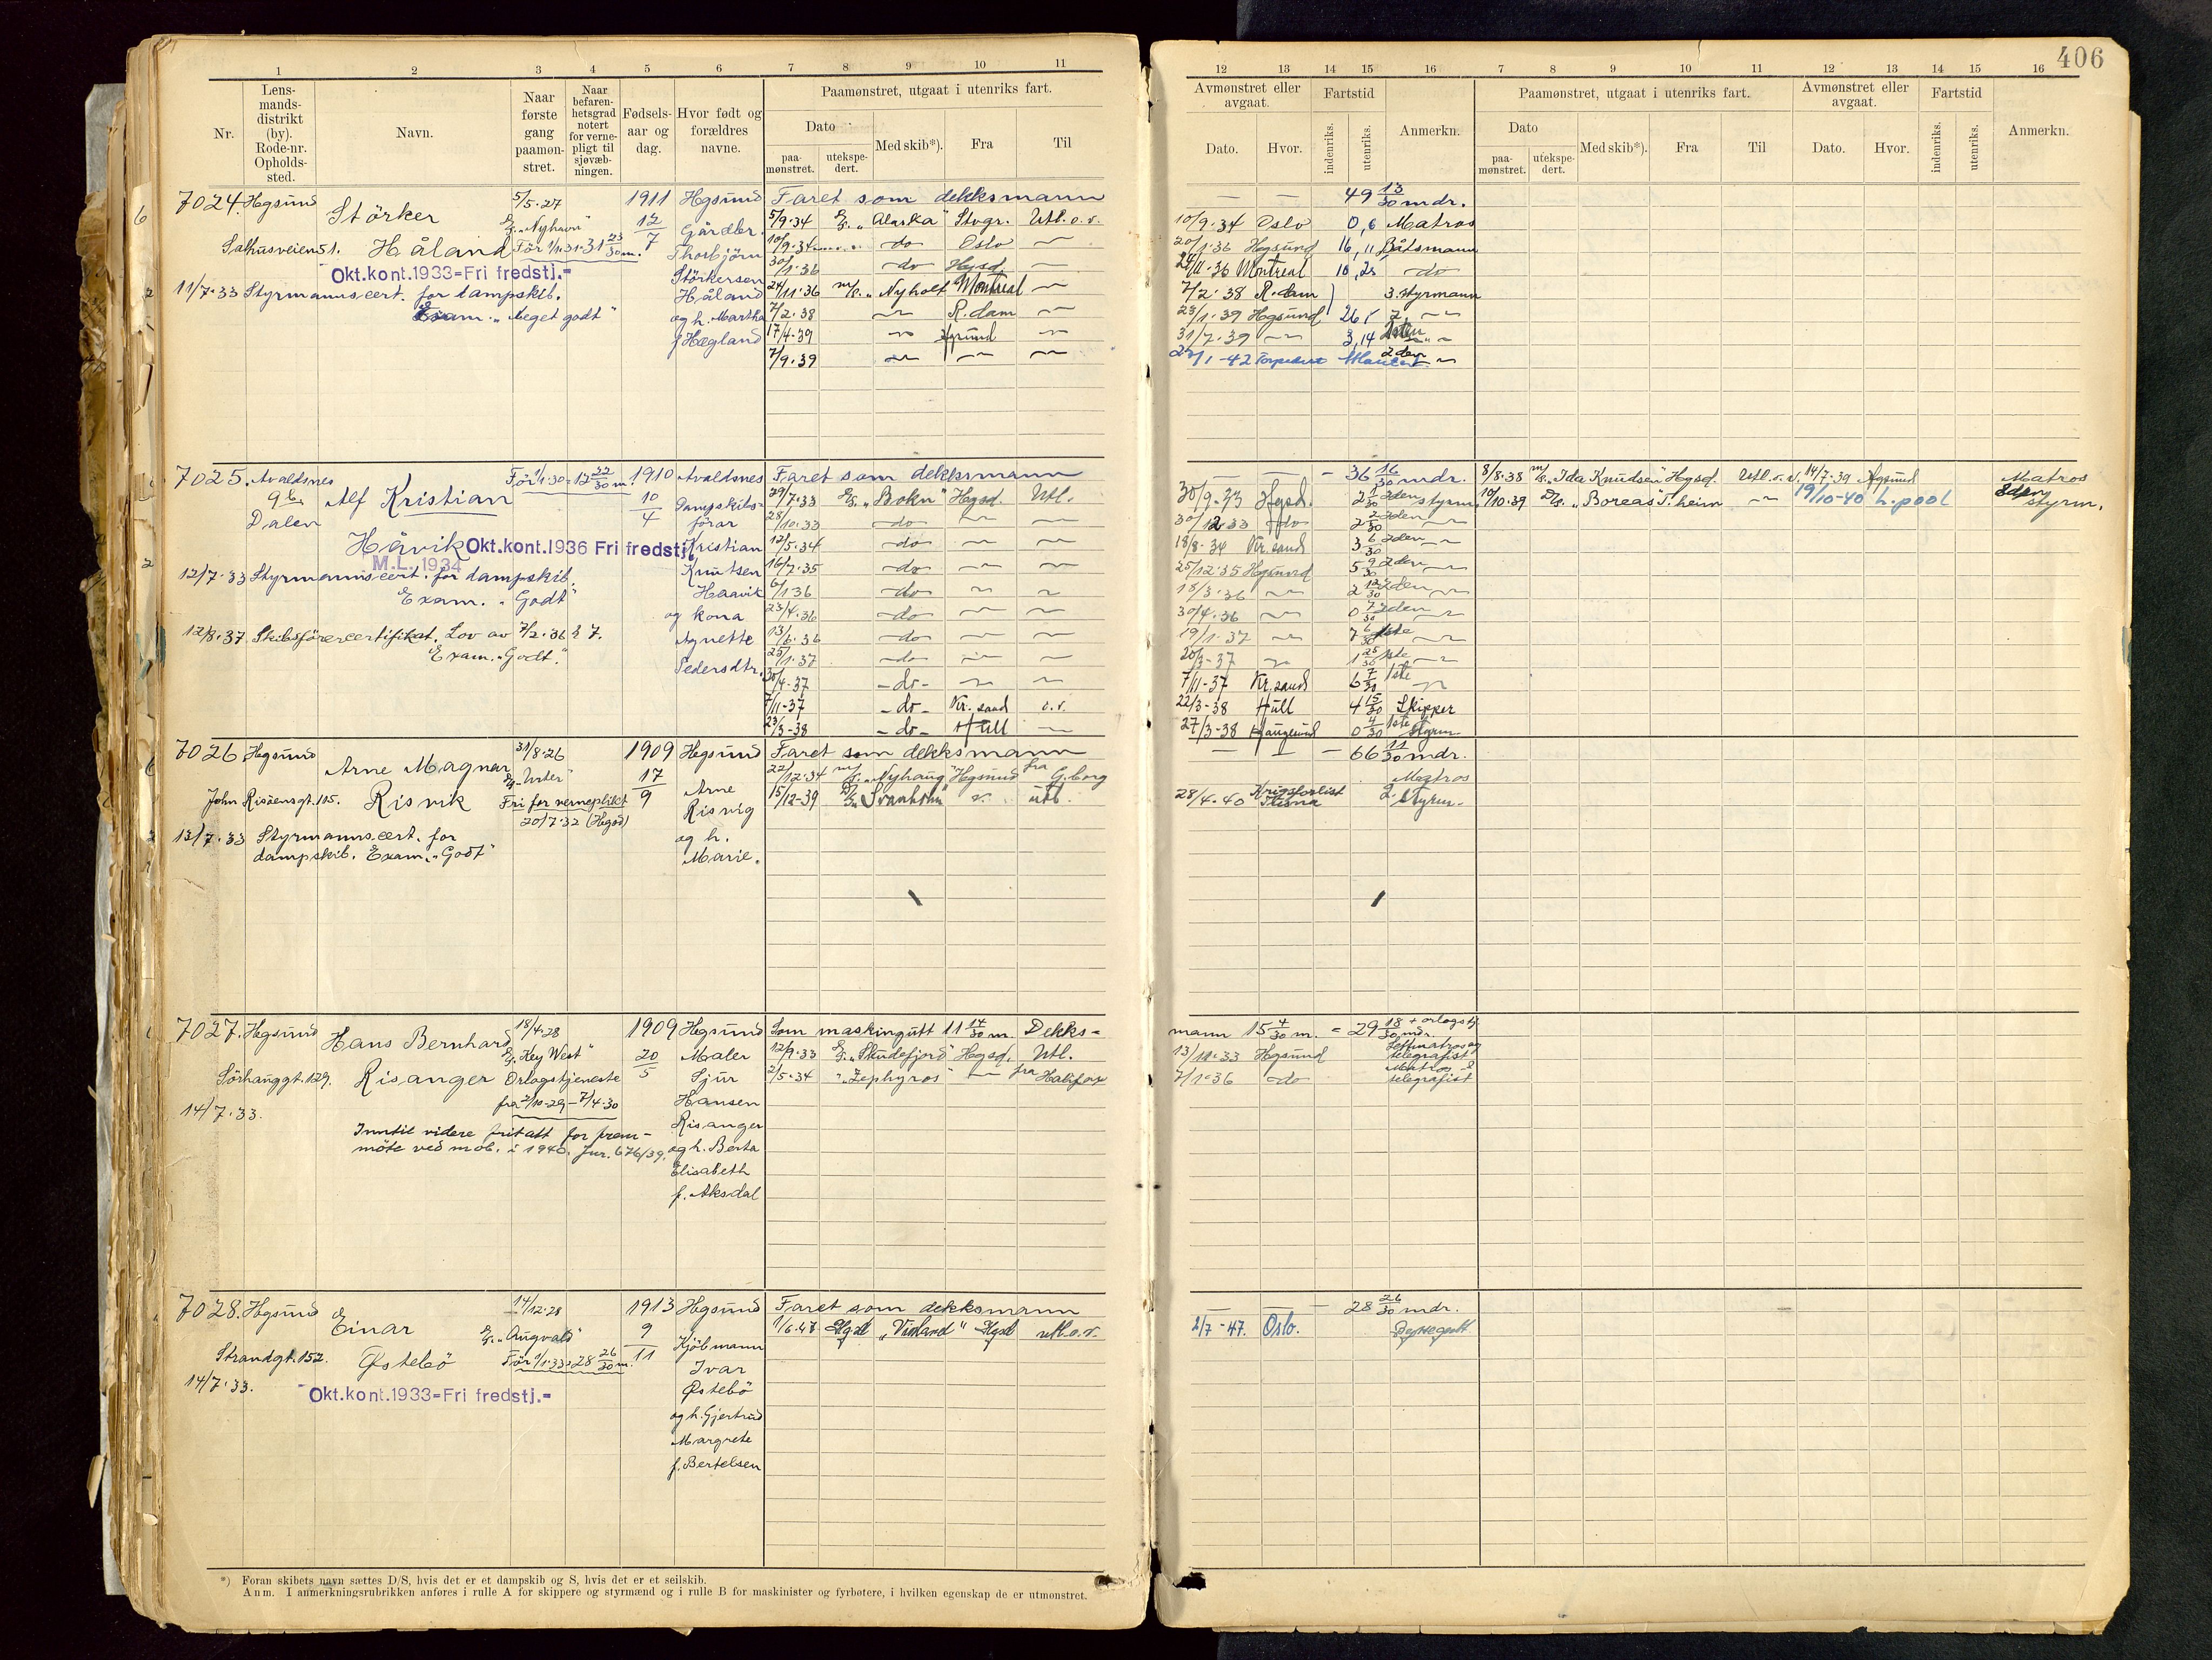 406
1 2 3 4 5 6 7 8 9 10 11
Nr.
Lens-
mands-
distrikt
(by).
Rode-nr.
Opholds-
sted.
Navn.
Naar
første
gang
paamøn-
stret.
Naar
befaren-
hetsgrad
notert
for verne-
pligt til
sjøvæb-
ningen.
Fødsels-
aar og
dag.
Hvor født og
forældres
navne.
Paamønstret, utgaat i utenriks fart.
Dato
paa-
mønstret.
utekspe-
dert.
Med skib*).
Fra
Til
12 13 14 15 16 7 8 9 10 11 12 13 14 15 16
Avmønstret eller
avgaat.
Dato.
Hvor.
Fartstid
indenriks.
utenriks.
Anmerkn.
Paamønstret, utgaat i utenriks fart.
Dato
paa-
mønstret.
utekspe-
dert.
Med skib*).
Fra
Til
Avmønstret eller
avgaat.
Dato.
Hvor.
Fartstid
indenriks.
utenriks.
Anmerkn.
7024. Hgsund
Störker
Håland
Salhusveien 51.
5/5.27
"Nyhavn"
Før 1/1.31=31 23/30 m.
Okt.kont.1933=Fri fredstj.=
11/7.33 Styrmannscert. for dampskib.
Exam. "Meget godt"
1911
12/7
Hgsund
Gårdbr.
Thorbjörn
Störkersen
Håland
og h. Martha
f. Hægland
Faret som dekksmann
5/9.34 "Alaska" Stvgr. Utl. o. v.
10/9.34 do Oslo
30/1.36 do Hgsd.
24/11.36 m/s. "Nyholt" Montreal
7/2.38 R.dam
17/4.39 Hgsund
7/9.39
49 13/30 mdr.
10/9.34 Oslo 0,6 Matros
20/1.36 Hgsund 16,11 Båtsmann
24/11.36 Montreal 10,25 do
7/2.38 R.dam 3.styrmann
23/1.39 Hgsund 26,1 2.
31/7.39 3,14
22/1-42 Torpedert Atlanteren 2den
7025. Avaldsnes
9b.
Dalen
Alf Kristian
Håvik
Før 1/1.30=12 22/30 m.
Okt.kont.1936 Fri fredstj.
M.L. 1934
12/7.33 Styrmannscert. for dampskib.
Exam. "Godt"
12/8.37 Skibsförercertifikat. Lov av 7/2.36 § 7.
Exam. "Godt".
1910
10/4
Avaldsnes
Dampskibs-
förar
Kristian
Knutsen
Haavik
og kona
Agnette
Pedersdtr.
Faret som dekksmann
29/7.33 "Bokn" Hgsd. Utl.
28/10.33 do
12/5.34 do
16/7.35 do
6/1.36 do
23/4.36 do
13/6.36 do
25/1.37 do
30/4-37 do
7/11-37 do Kr.sand o.v.
23/3-38 do Hull
36 16/30 mdr.
30/9.33 Hgsd. 2den styrm.
30/12.33 do 2 2/30 2den
18/8-34 Kr.sand 3 6/30 2den
25/12.35 Hgsund 5 9/30 2den
18/3.36 2 12/30 2den
30/4.36 0 7/30 2den
19/1.37 7 6/30 1ste
20/3-37 1 25/30 1ste
7/11-37 Kr.sand 6 7/30 1ste
22/3-38 Hull 4 15/30 Skipper
27/3-38 Haugesund 0 4/30 1ste styrm
8/8.38 m/s. "Ida Knudsen" Hgsd. Utl. o. v. 14/7.39 Hgsund Matros
10/10.39 D/s. "Boreas" T.heim 19/10-40 L.pool styrm.
7026 Hgsund
Arne Magnar
Risvik
John Risöensgt. 105.
31/8.26
"Urter"
Fri for verneplikt
20/7.32 (Hgsd)
13/7.33 Styrmannscert. for
dampskib. Exam. "Godt"
1909
17/9
Hgsund
Arne
Risvig
og h.
Marie.
Faret som dekksmann
22/12.34 m/s. "Nyhaug" Hgsund fra G.borg
15/12-39 D/s "Svanholm" utl.
66 11/30 mdr.
Matros
28/4.40 Krigsforlist 2. Styrm.
7027. Hgsund
Hans Bernhard
Risanger
Sörhauggt. 129.
14/7.33.
18/4.28
"Key West"
Orlogstjeneste
fra 2/10-29-7/4.30
Inntil videre fritatt for frem-
möte ved mob. i 1940. Jnr. 676/39.
1909
20/5
Hgsund
Maler
Sjur
Hansen
Risanger
og h. Berta
Elisabeth
f. Aksdal
Som maskingutt 11 14/30 m. Dekks-
mann 15 4/30 m. = 29 18/30 mdr. + orlogstj.
12/9.33 "Skudefjord" Hgsd. Utl.
2/5.34 "Zephyros" fra Halifax
13/11.33 Hgsund Lettmatros og
telegrafist
7/1.36 do Matros &
telegrafist
7028. Hgsund
Einar
Østebö
Strandgt. 152.
14/7.33.
14/12.28
"Augvald"
Før 1/1.33=28 26/30 m.
Okt.kont.1933=Fri fredstj.=
1913
9/11
Hgsund
Kjöbmann
Ivar
Østebö
og h. Gjertrud
Margrete
f. Bertelsen
Faret som dekksmann
1/6.47 Hgsd "Vinland" Hgsd utl. o. v.
28 26/30 mdr.
2/7-47. Oslo.
*) Foran skibets navn sættes D/S, hvis det er et dampskib og S, hvis det er et seilskib.
Anm. I anmerkningsrubrikken anføres i rulle A for skippere og styrmænd og i rulle B for maskinister og fyrbøtere, i hvilken egenskap de er utmønstret.